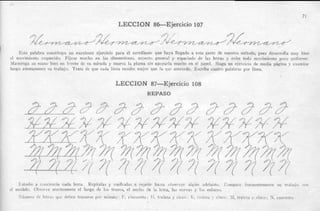 71
LECCION 86—Ejercicio 107
Hermano Hermano Hermano Hermano
Esta palabra constituye un excelente ejercicio para el estudiante que haya llegado a esta parte de nuestro método, pues desarrolla muy bien
el movimiento requerido. Fíjese mucho en las dimensiones, aspecto general y espaciado de las letras y evite todo movimiento poco uniforme.
Mantenga su mano bien en frente de su mirada y mueva la pluma sin apoyarla mucho en el papel. Haga un ejercicio de media página y examine
luego atentamente su trabajo. Trate de que cada línea resulte mejor que la que antecede. Escriba cuatro palabras por línea.
LECCION 87—Ejercicio 108
REPASO
P P P P P P P P P P P P
H H H H H H H H H H H H
K K K K K K K K K K K K
M M M M M M M M M M M
N N N N N N N N N N N N
Estudie a conciencia cada letra. Repítalas y vuélvalas a repetir hasta observar algún adelanto. Compare frecuentemente su trabajo con
el modelo. Observe atentamente el largo de los trazos, el ancho de la letra, las curvas y los ángulos.
Número de letras que deben trazarse por minuto: P, cincuenta; H, treinta y cinco; K, treinta y cinco; M, treinta y cinco; N, cuarenta.